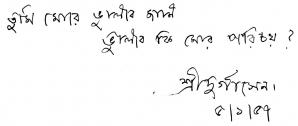 তুমি মোরে ভুলাবে জানি
ভুলাবে কি মোর পরিচয় ?
শ্রীদুর্গাসেন।
৫/১/৫৭